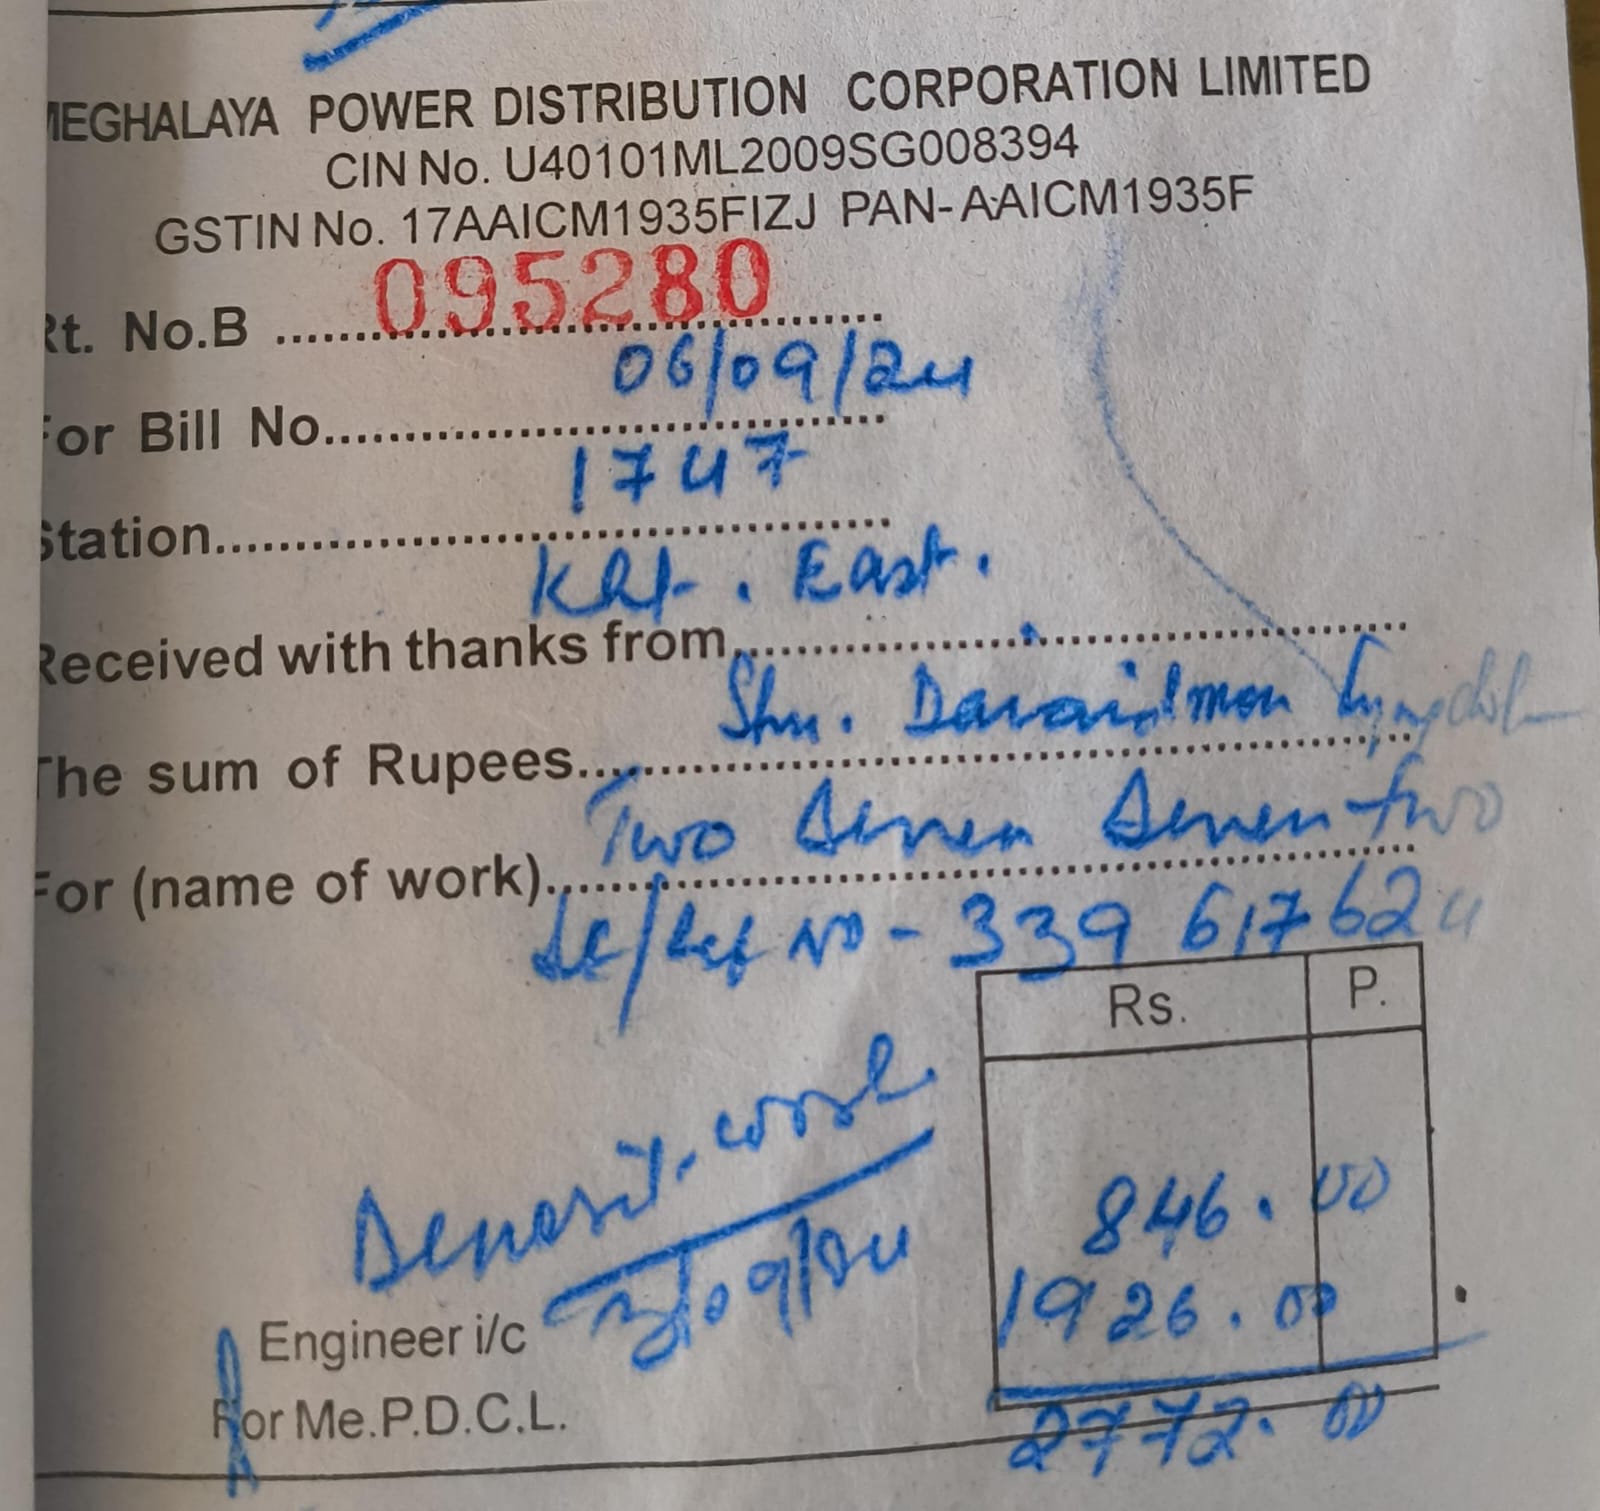 MEGHALAYA POWER DISTRIBUTION CORPORATION LIMITED
CIN No. U40101ML2009SG008394
GSTIN No. 17AAICM1935FIZJ PAN-AAICM1935F
Rt. No.B 095280
06/09/24
For Bill No.
1747
Station
East.
Received with thanks from
Shri.
The sum of Rupees
Two Seven Seven two
For (name of work)
No - 339 617624
Rs. P.
Deposit work
846.00
/09/24
1926.00
Engineer i/c
For Me.P.D.C.L.
2772.00